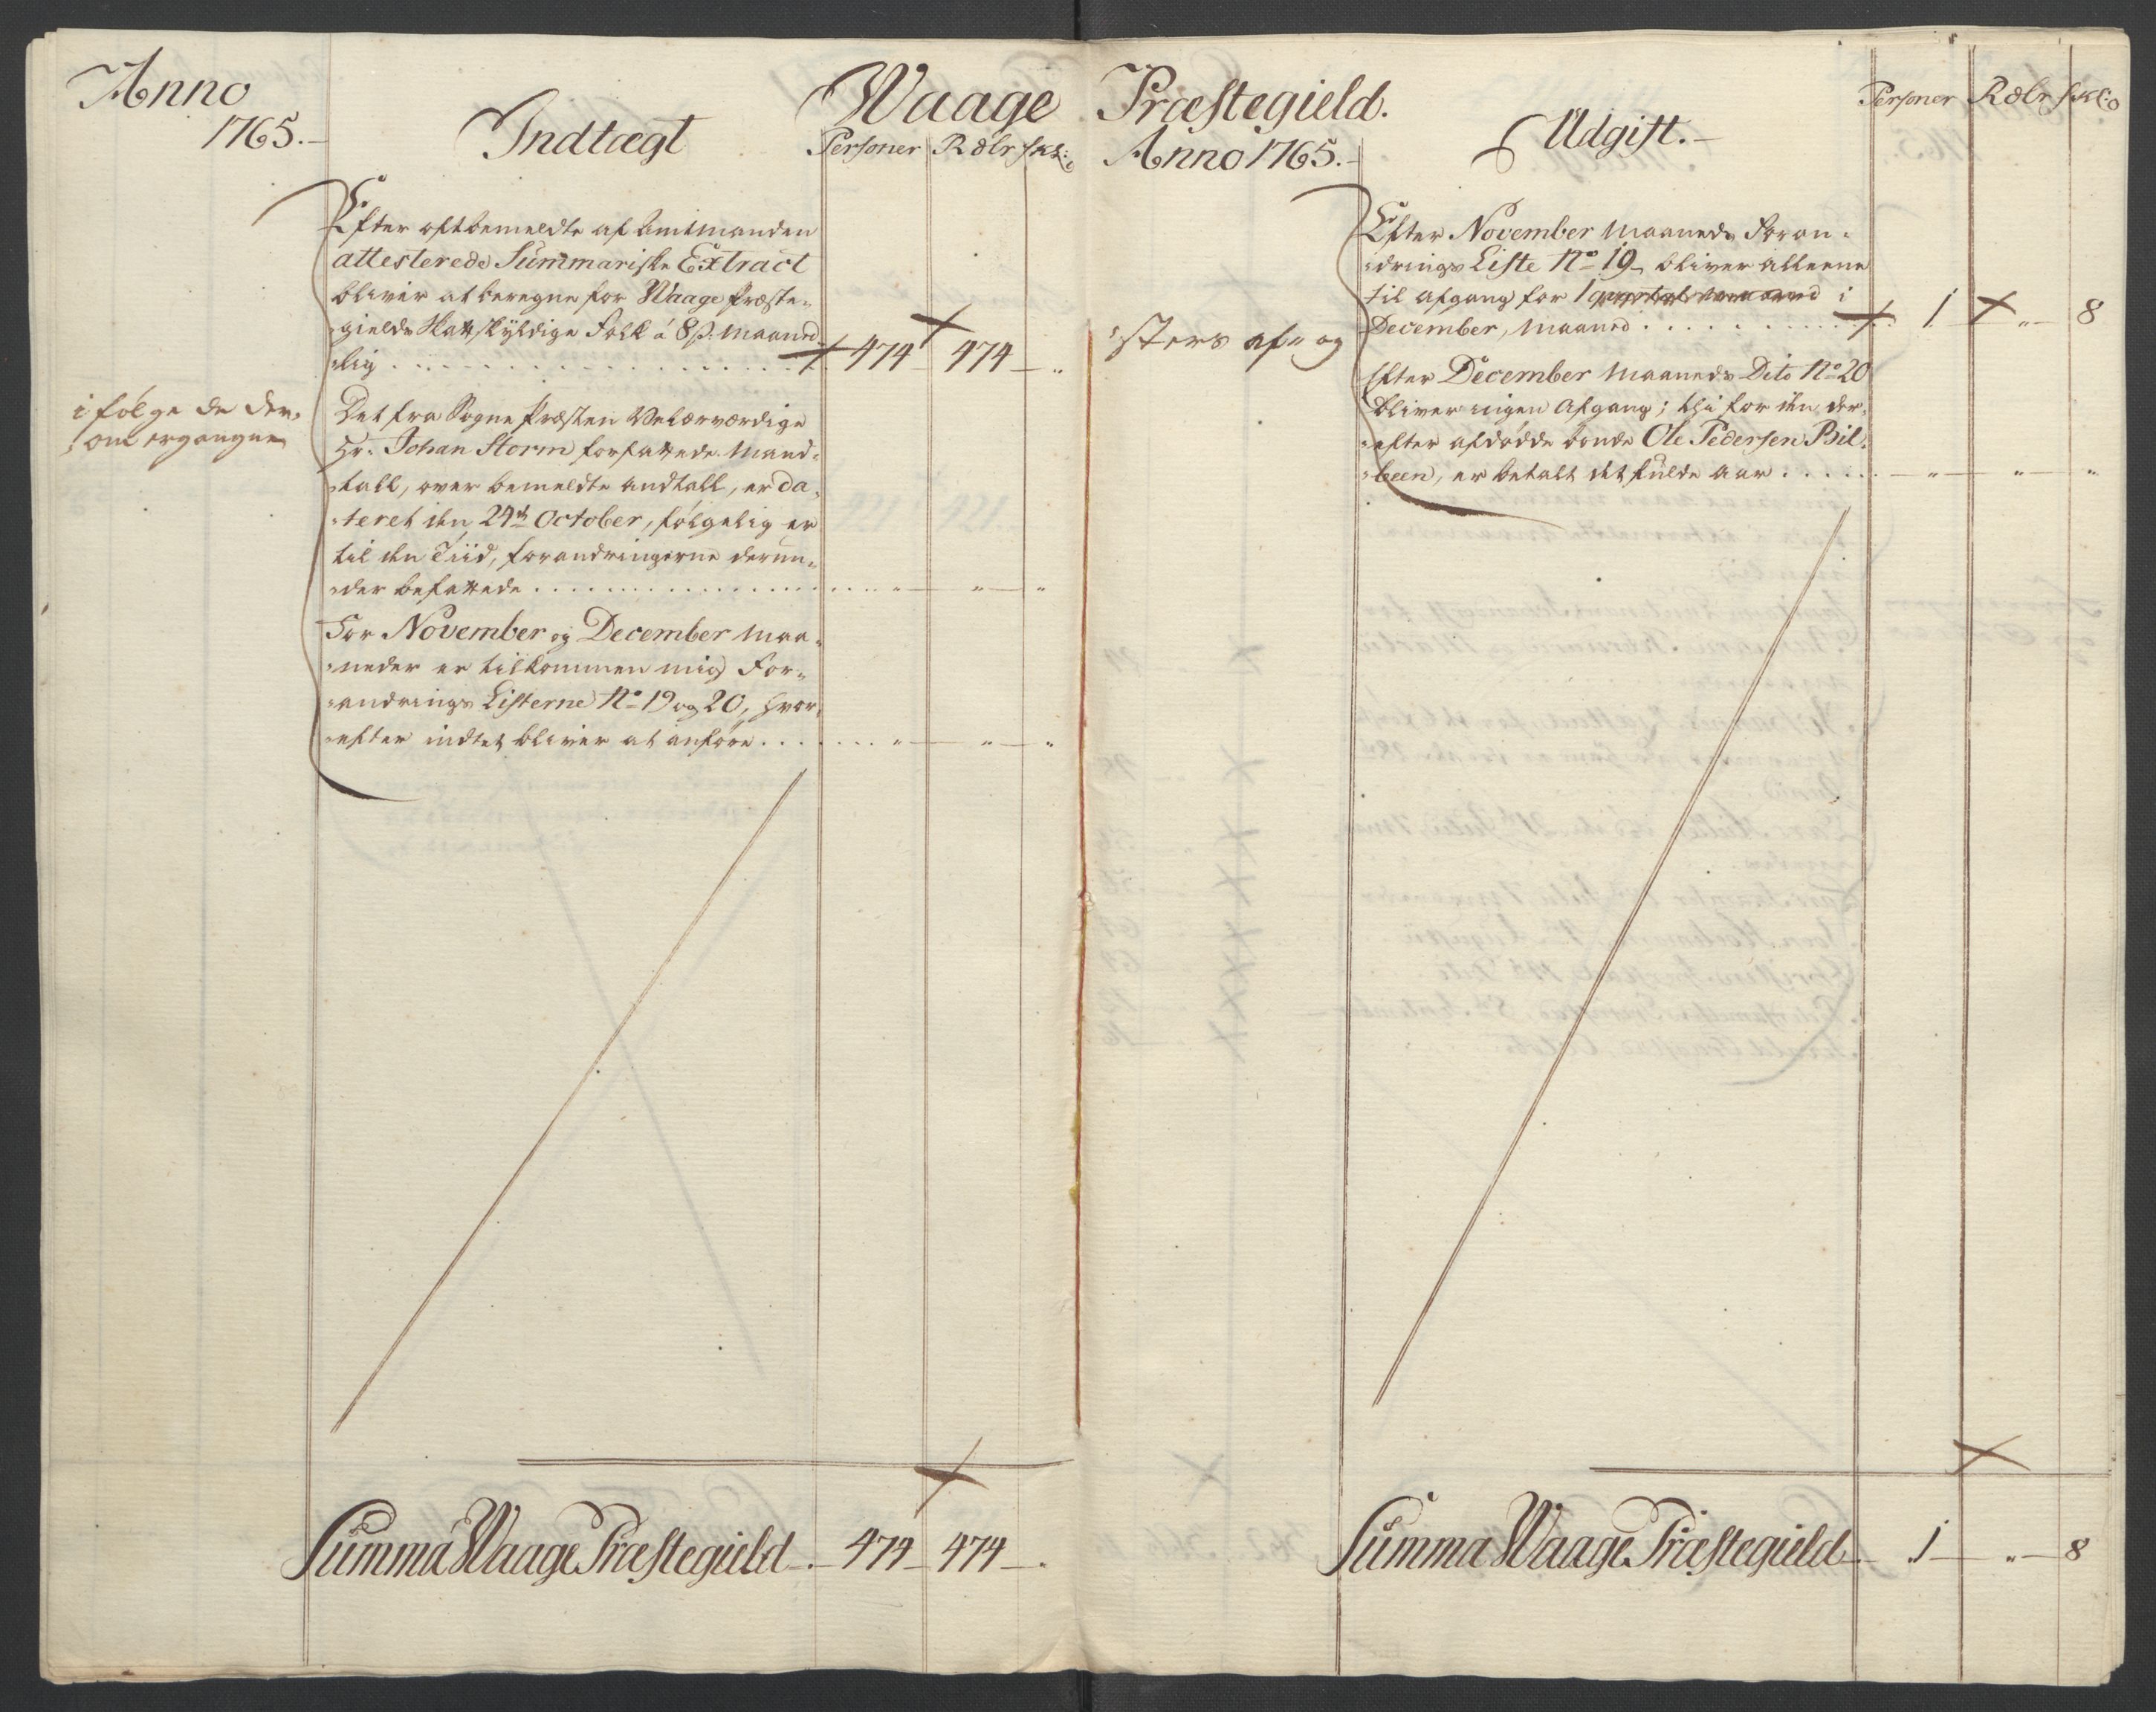 Anno
1765.
Indtægt
Waage
Personer Rdlr sk:
Efter oftbemeldte af Amtmanden
attesterede Summariske Extract
bliver at beregne for Waage Præste-
gields Skattskyldige Folk á 8 s. maaned-
lig . . . 474 474
i følge de der-
om ergangne
Det fra Sogne Præsten Velærværdige
Hr. Johan Storm forfattede Mand-
tall, over bemeldte Andtall, er da-
teret den 24de October, følgelig er
til den Tiid, forandringerne derun-
der befattede . . . " " "
For November og December Maa-
neder er tilkommen mig For-
andrings Listerne No 19 og 20, hvor-
efter indtet bliver at anføre . . . " " "
Summa Waage Præstegield 474 474
Præstegield.
Anno 1765.
Udgift.
Personer Rdlr sk:
Efter November Maaneds Foran-
drings Liste No 19 bliver alleene
til afgang for 1 i
December, Maaned . . . 1 " 8
Efter December Maaneds Dito No 20
bliver ingen Afgang; thi for den der-
efter afdødde bonde Ole Pedersen Bil-
been, er betalt det fulde aar . . . " " "
Summa Waage Præstegield 1 " 8